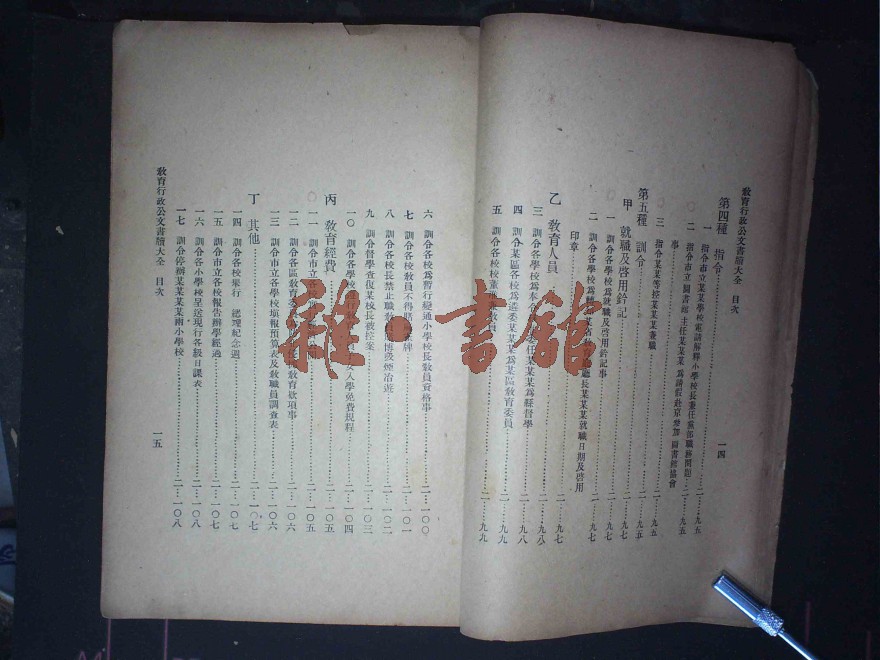 教育行政公文書牘大全　目次
一四
第四種　指令
二‥九五
一　指令市立某某學校電請解釋小學校長兼任黨部職務問題
二‥九五
二　指令市立圖書館主任某某某爲請假赴京參加圖書館協會
事
二‥九五
三　指令某某等控某某某兼職
二‥九五
第五種　訓令
二‥九七
甲　就職及啓用鈐記
二‥九七
一　訓令各學校爲就職及啓用鈐記事
二‥九七
二　訓令各學校爲
長某某某就職日期及啓用
印章
二‥九七
乙　敎育人員
二‥九七
三　訓令各學校爲奉
委任某某某爲縣督學
二‥九八
四　訓令某區各校爲遴委某某某爲某區敎育委員
二‥九八
五　訓令各校校董
敎員
二‥九九
六　訓令各校爲暫行變通小學校長敎員資格事
二‥一〇〇
七　訓令各校敎員不得賭
牌
二‥一〇一
八　訓令各校長禁止職敎
賭博吸煙冶遊
二‥一〇二
九　訓令督學查復某校長被控案
二‥一〇三
一〇　訓令各學校
女入學免費規程
二‥一〇四
丙　敎育經費
二‥一〇五
一一　訓令市立各校
二‥一〇五
一二　訓令各區敎育委
敎育款項事
二‥一〇六
一三　訓令市立各學校塡報預算表及敎職員調查表
二‥一〇六
丁　其他
二‥一〇七
一四　訓令各校舉行　總理紀念週
二‥一〇七
一五　訓令市立各校報告辦學經過
二‥一〇八
一六　訓令各小學校呈送現行各級日課表
二‥一〇八
一七　訓令停辦某某某某兩小學校
二‥一〇八
教育行政公文書牘大全　目次
一五
雜·書館